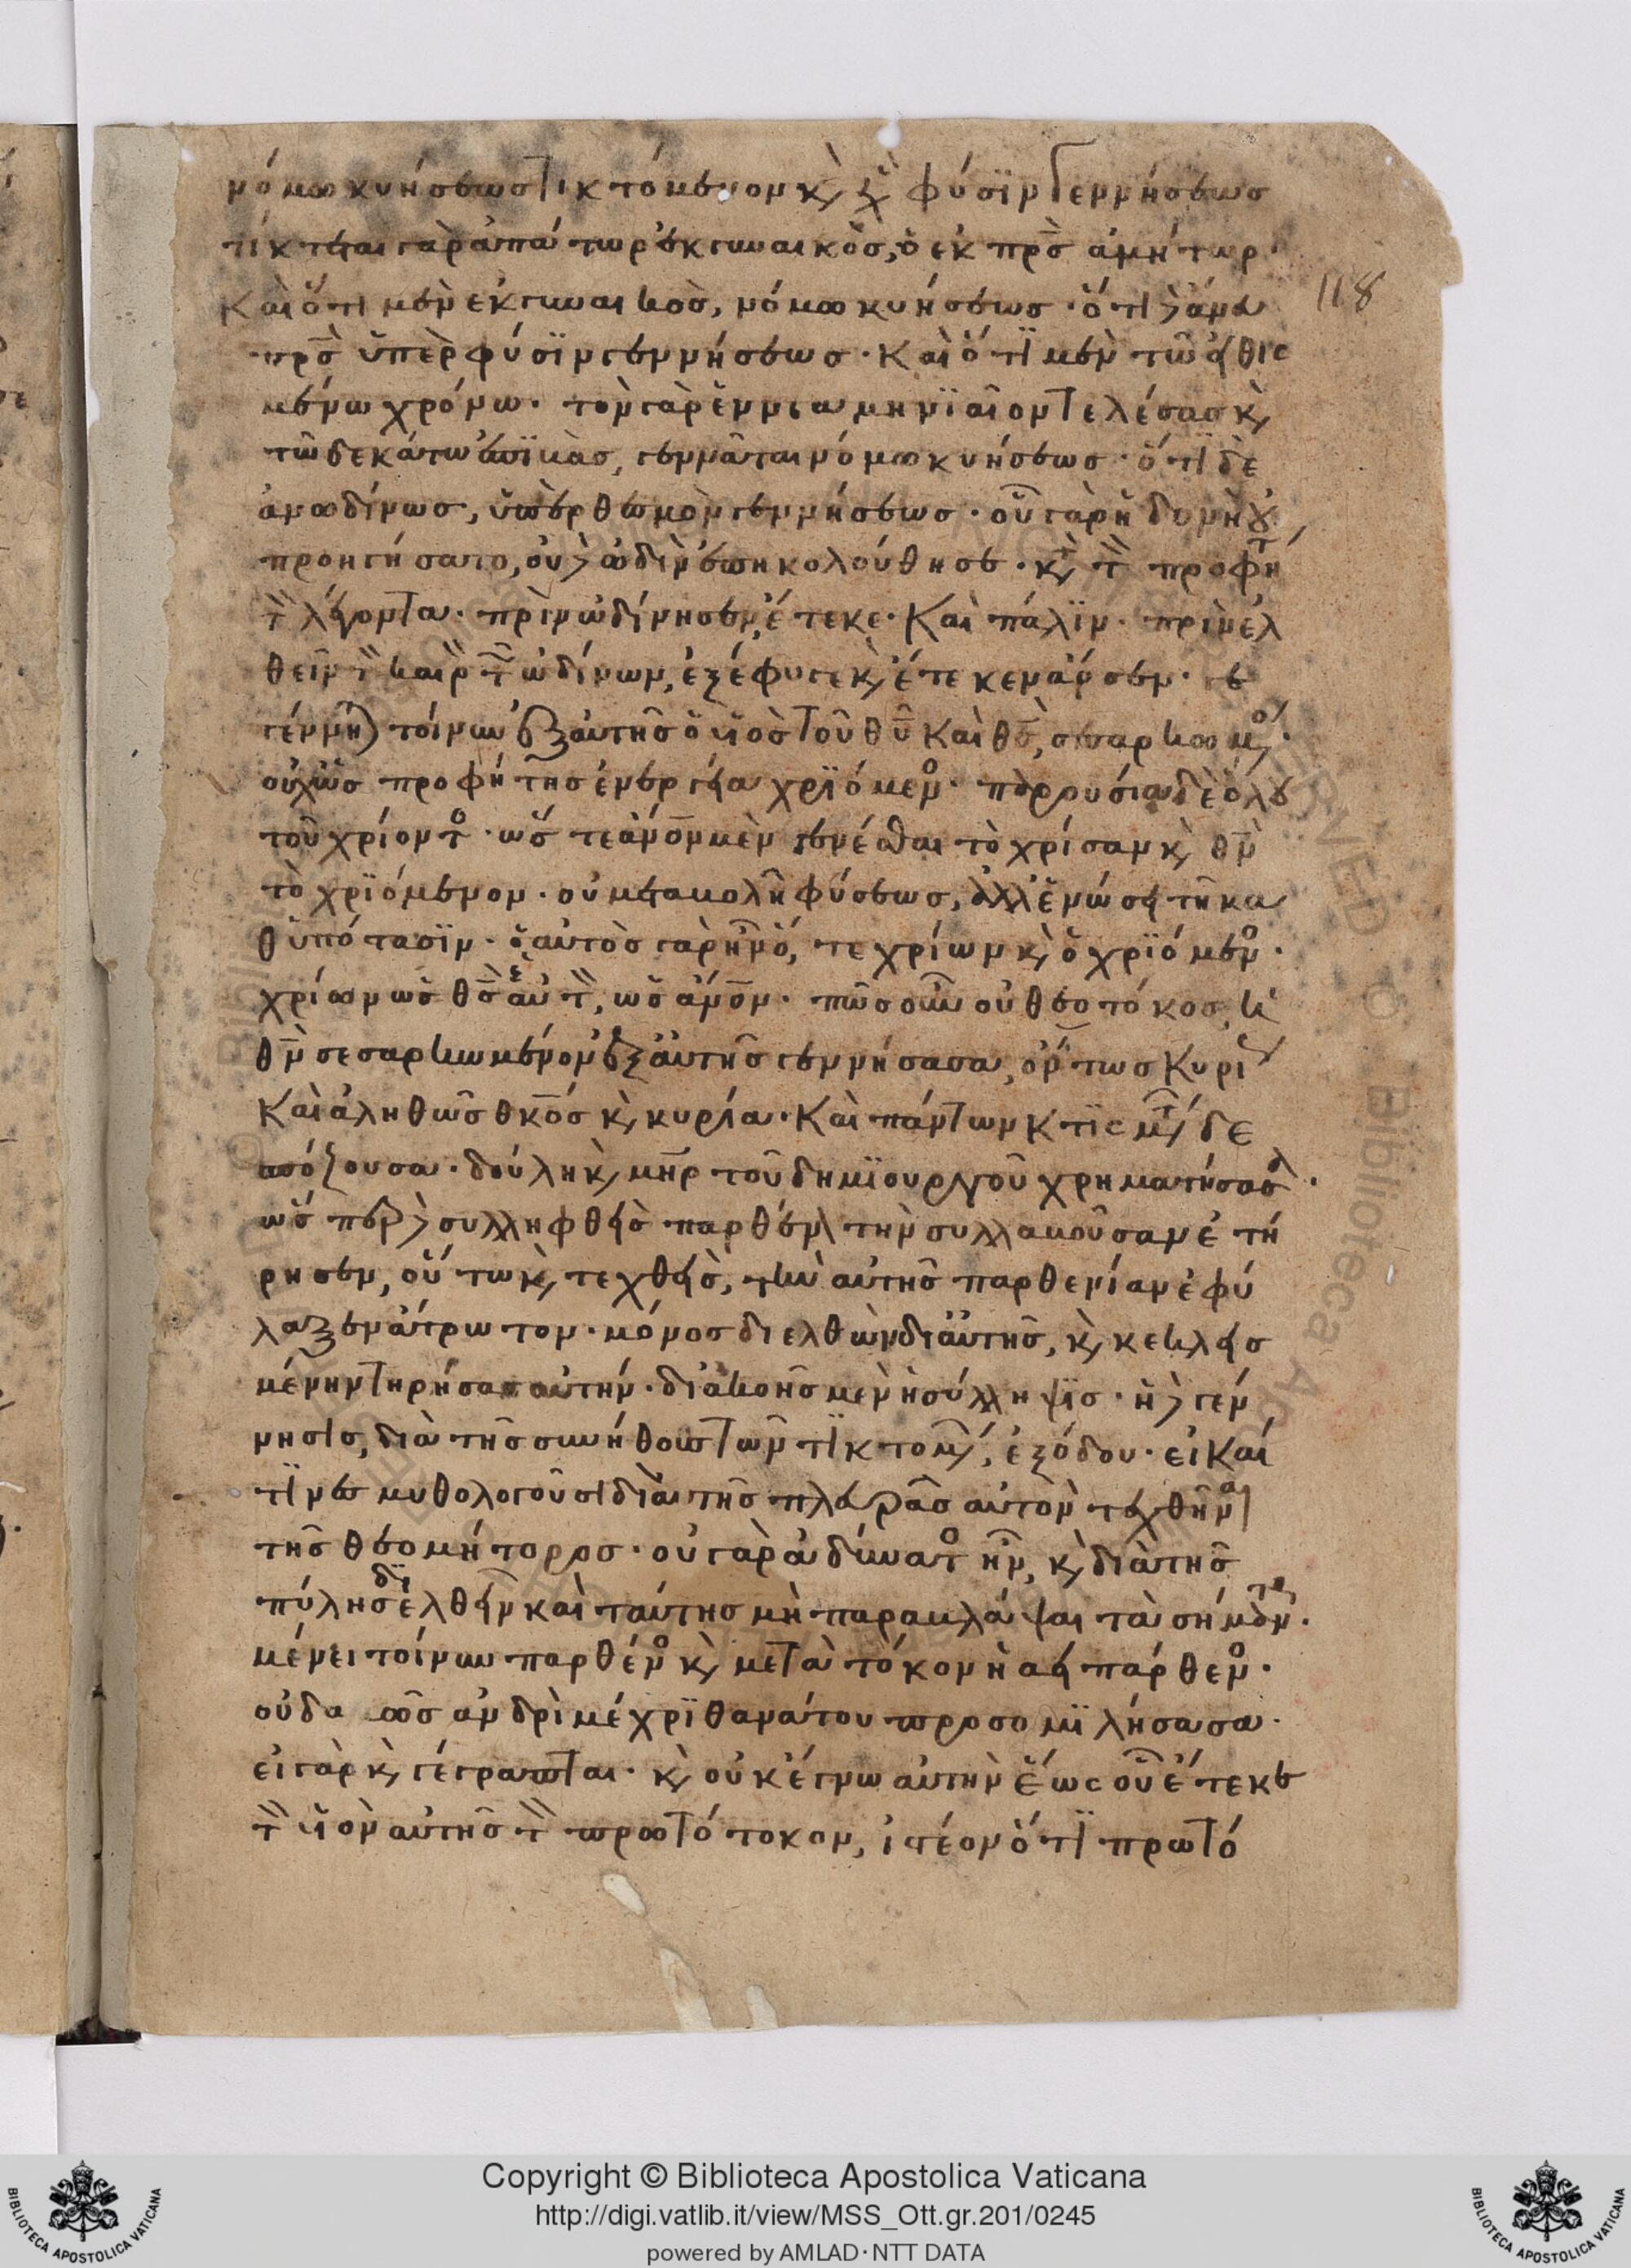 νόμω κυήσεως τικτόμενον κ(αὶ) ὑπ(ὲρ) φύσϊν γεννήσεως
τίκτεται γὰρ ἀπάτωρ ἐκ γυναικὸς, ὁ ἐκ πρς ἀμήτωρ·
118
Καὶ ὅτι μὲν ἐκ γυναικὸς, νόμω κυήσεως· ὅτι δ(ὲ) ἄνευ
πρς ὑπὲρ φύσϊν γεννήσεως· Καὶ ὅτϊ μὲν τῶ εἰθις
μένω χρόνω· τὸν γὰρ ἔννεαμηνϊαῖον τελέσας κ(αὶ)
τῶ δεκάτω ἐπϊβὰς, γεννᾶται νόμω κυήσεως· ὅτϊ δὲ
ἀνωδίνως, ὑπὲρ θεσμὸν γεννήσεως· οὗ γὰρ ἡδονὴ οὐ
προηγήσατο, οὐδ(ὲ) ὠδὶν ἐπηκολούθησε· κ(α)τ(ὰ) τ(ὸν) προφήτ(ην)
τ(ὸν) λέγοντα· πρὶν ὠδίνησεν, ἔτεκε· Καὶ πάλϊν· πρὶν ἐλ
θεῖν τ(ὸν) καιρ(ὸν) τ(ῶν) ὠδίνων, ἐξέφυγε κ(αὶ) ἔτεκεν ἄρσεν· γε
γέννη(ται) τοίνυν ἐξ αὐτῆς ὁ υἱὸς τοῦ θυ Καὶ θς, σεσαρκωμ(έν)ο(ς)·
οὐχ ὡς προφήτης ἐνεργεία χρϊόμενο(ς)· παρουσία δὲ ὅλου
τοῦ χρίοντο(ς)· ὥς τε ἄνον μὲν γενέσθαι τὸ χρίσαν κ(αὶ) θν
τὸ χρϊόμενον· οὐ μεταβολῆ φύσεως, ἀλλ ἑνώσει τῆ κα
θ ὑπόστασϊν· ὁ αὐτὸς γὰρ ἦν ὅ, τε χρίων κ(αὶ) ὁ χρϊόμενο(ς)·
χρίων ὡς θς ἑαυτ(ὸν), ὡς ἄνον· πῶς οὖν οὐ θεοτόκος, ἡ
θν σεσαρκωμένον ἐξ αὐτῆς γεννήσασα, ὄντως Κυρί(ως)
Καὶ ἀληθῶς θκος κ(αὶ) κυρία· Καὶ πάντων Κτϊσμ(ά)τ(ων) δε
σπόζουσα· δούλη κ(αὶ) μηρ τοῦ δημϊουργοῦ χρηματήσασα·
ὥς περ δ(ὲ) συλληφθεὶς παρθέν(ον) τὴν συλλαβοῦσαν ἐτή
ρησεν, οὕτω κ(αὶ) τεχθεὶς, τὴν αὐτῆς παρθενίαν ἐφύ
λαξεν ἄτρωτον· μόνος διελθὼν δι αὐτῆς, κ(αὶ) κεκλεις
μένην τηρήσας αὐτήν· δι ἀκοῆς μεν ἡ σύλληψϊς· ἡ δ(ὲ) γέν
νησις, διὰ τῆς συνήθους τῶν τϊκτομ(έν)ων, ἐξόδου· εἰ Καί
τϊνες μυθολογοῦσι διὰ τῆς πλευρᾶς αὐτὸν τεχθῆναι
τῆς θεομήτορος· οὐ γὰρ ἀδύνατο(ν) ἦν, κ(αὶ) διὰ τῆς
πύλης διελθεῖν Καὶ ταύτης μὴ παραβλάψαι τὰ σήμαντρα·
μένει τοίνυν παρθένο(ς) κ(αὶ) μετὰ τόκον ἡ ἀεὶ πάρθενο(ς)·
οὐδαμῶς ἀνδρὶ μέχρϊ θανάτου προσομϊλήσασα·
εἰ γὰρ κ(αὶ) γέγραπται· κ(αὶ) οὐκ ἔγνω αὐτὴν ἕως οὗ ἔτεκε
τ(ὸν) υἱὸν αὐτῆς τ(ὸν) πρωτότοκον, ἰστέον ὅτϊ πρωτό
Copyright © Biblioteca Apostolica Vaticana
http://digi.vatlib.it/view/MSS_Ott.gr.201/0245
powered by AMLAD·NTT DATA
BIBLIOTECA APOSTOLICA VATICANA
BIBLIOTECA APOSTOLICA VATICANA